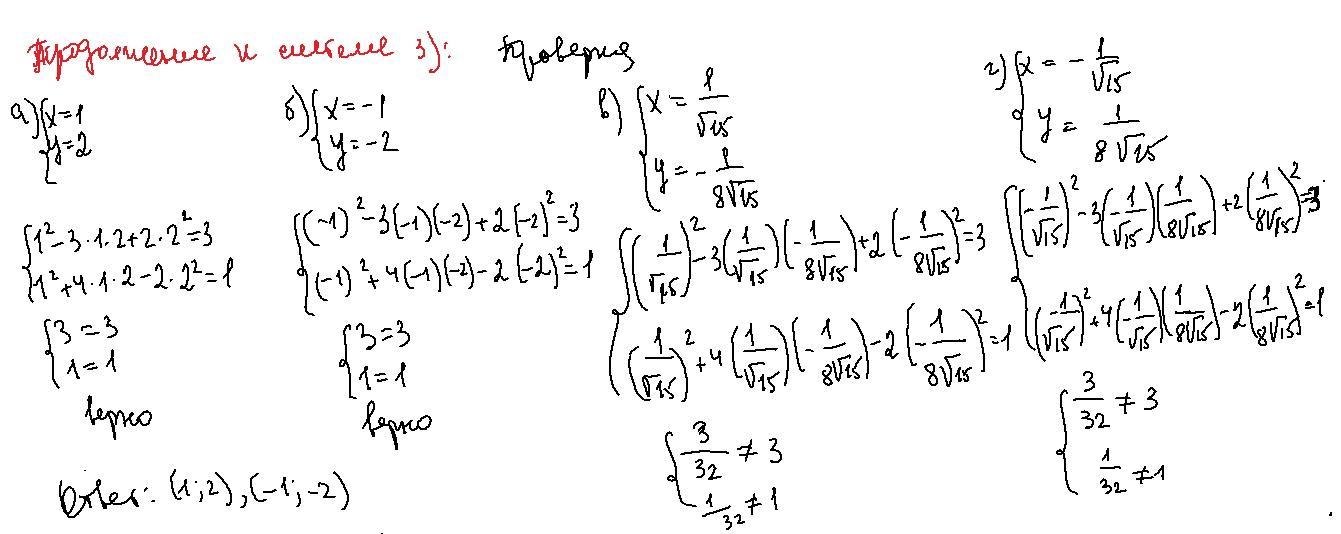 Продолжение к системе 3): Проверка
а) { x = 1
y = 2
{ 1² - 3·1·2 + 2·2² = 3
1² + 4·1·2 - 2·2² = 1
{ 3 = 3
1 = 1
верно
б) { x = -1
y = -2
{ (-1)² - 3(-1)(-2) + 2(-2)² = 3
(-1)² + 4(-1)(-2) - 2(-2)² = 1
{ 3 = 3
1 = 1
верно
в) { x = 1/√15
y = - 1/8√15
{ (1/√15)² - 3(1/√15)(-1/8√15) + 2(-1/8√15)² = 3
(1/√15)² + 4(1/√15)(-1/8√15) - 2(-1/8√15)² = 1
{ 3/32 ≠ 3
1/32 ≠ 1
г) { x = - 1/√15
y = 1/8√15
{ (-1/√15)² - 3(-1/√15)(1/8√15) + 2(1/8√15)² = 3
(-1/√15)² + 4(-1/√15)(1/8√15) - 2(1/8√15)² = 1
{ 3/32 ≠ 3
1/32 ≠ 1
Ответ: (1; 2), (-1; -2)